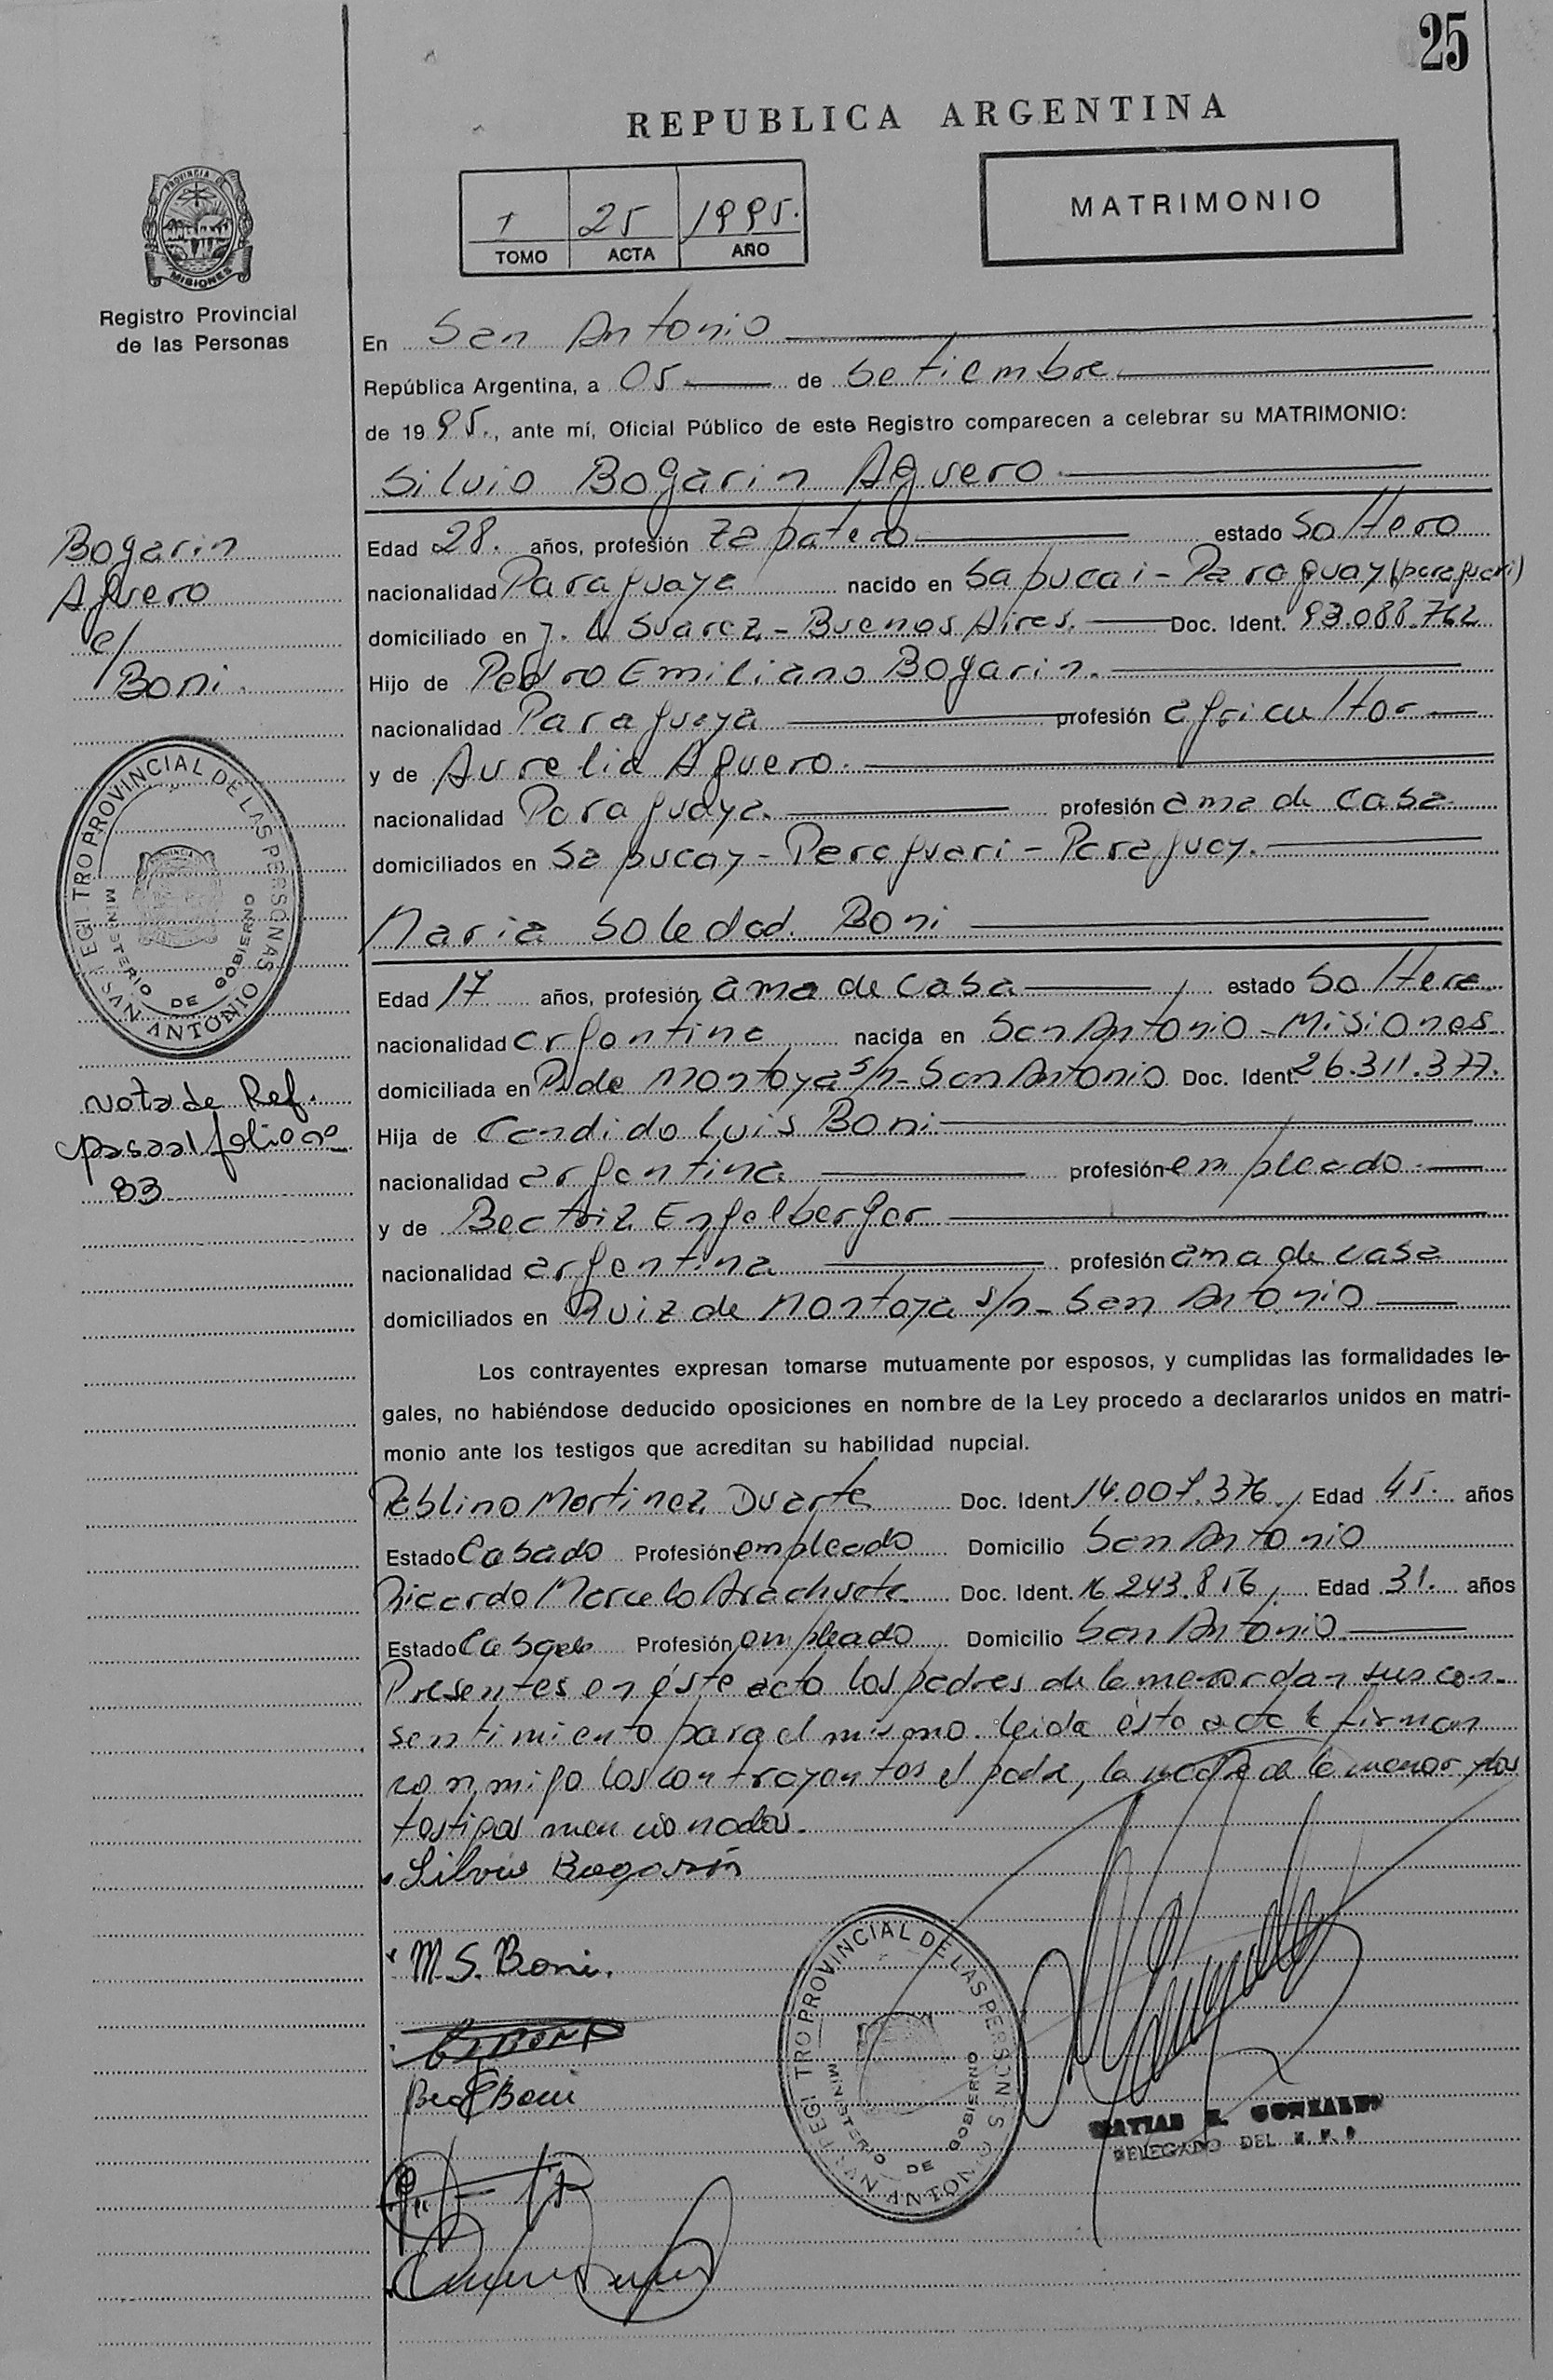 25
REPUBLICA ARGENTINA
1 25 1995.
TOMO ACTA AÑO
MATRIMONIO
PROVINCIA DE
MISIONES
Registro Provincial
de las Personas
En San Antonio
República Argentina, a 05 de Setiembre
de 1995., ante mí, Oficial Público de este Registro comparecen a celebrar su MATRIMONIO:
Silvio Bogarin Aguero
Bogarin
Aguero
c/
Boni.
Edad 28. años, profesión zapatero estado Soltero
nacionalidad Paraguaya nacido en Sapucai - Paraguay (paraguari)
domiciliado en J. L Suarez - Buenos Aires. Doc. Ident. 93.088.762
Hijo de Pedro Emiliano Bogarin.
nacionalidad Paraguaya profesión agricultor
y de Aurelia Aguero.
nacionalidad Paraguaya. profesión ama de casa
domiciliados en Sapucay - Paraguari - Paraguay.
REGISTRO PROVINCIAL DE LAS PERSONAS
MINISTERIO DE GOBIERNO
SAN ANTONIO
Maria Soledad Boni
Edad 17 años, profesión ama de casa estado Soltera
nacionalidad argentina nacida en San Antonio - Misiones
domiciliada en R. de Montoya s/n - San Antonio Doc. Ident. 26.311.377.
Hija de Candido Luis Boni
nacionalidad argentina profesión empleado.
y de Beatriz Engelberger
nacionalidad argentina profesión ama de casa
domiciliados en Ruiz de Montoya s/n - San Antonio
Nota de Ref.
pasa al folio nº
83
Los contrayentes expresan tomarse mutuamente por esposos, y cumplidas las formalidades le-
gales, no habiéndose deducido oposiciones en nombre de la Ley procedo a declararlos unidos en matri-
monio ante los testigos que acreditan su habilidad nupcial.
Pablino Martinez Duarte Doc. Ident 14.007.376 Edad 45. años
Estado Casado Profesión empleado Domicilio San Antonio
Ricardo Marcelo Arachuete Doc. Ident. 16.243.856 Edad 31. años
Estado Casado Profesión empleado Domicilio San Antonio
Presentes en éste acto los padres de la menor dan su con-
sentimiento para el mismo. leida ésta acta la firman
conmigo los contrayentes el padre, la madre de la menor y los
testigos mencionados.
Silvio Bogarín
M. S. Boni.
C L BONI
Bea E Boni
REGISTRO PROVINCIAL DE LAS PERSONAS
MINISTERIO DE GOBIERNO
SAN ANTONIO
MATIAS R. GONZALEZ
DELEGADO DEL R. P. P